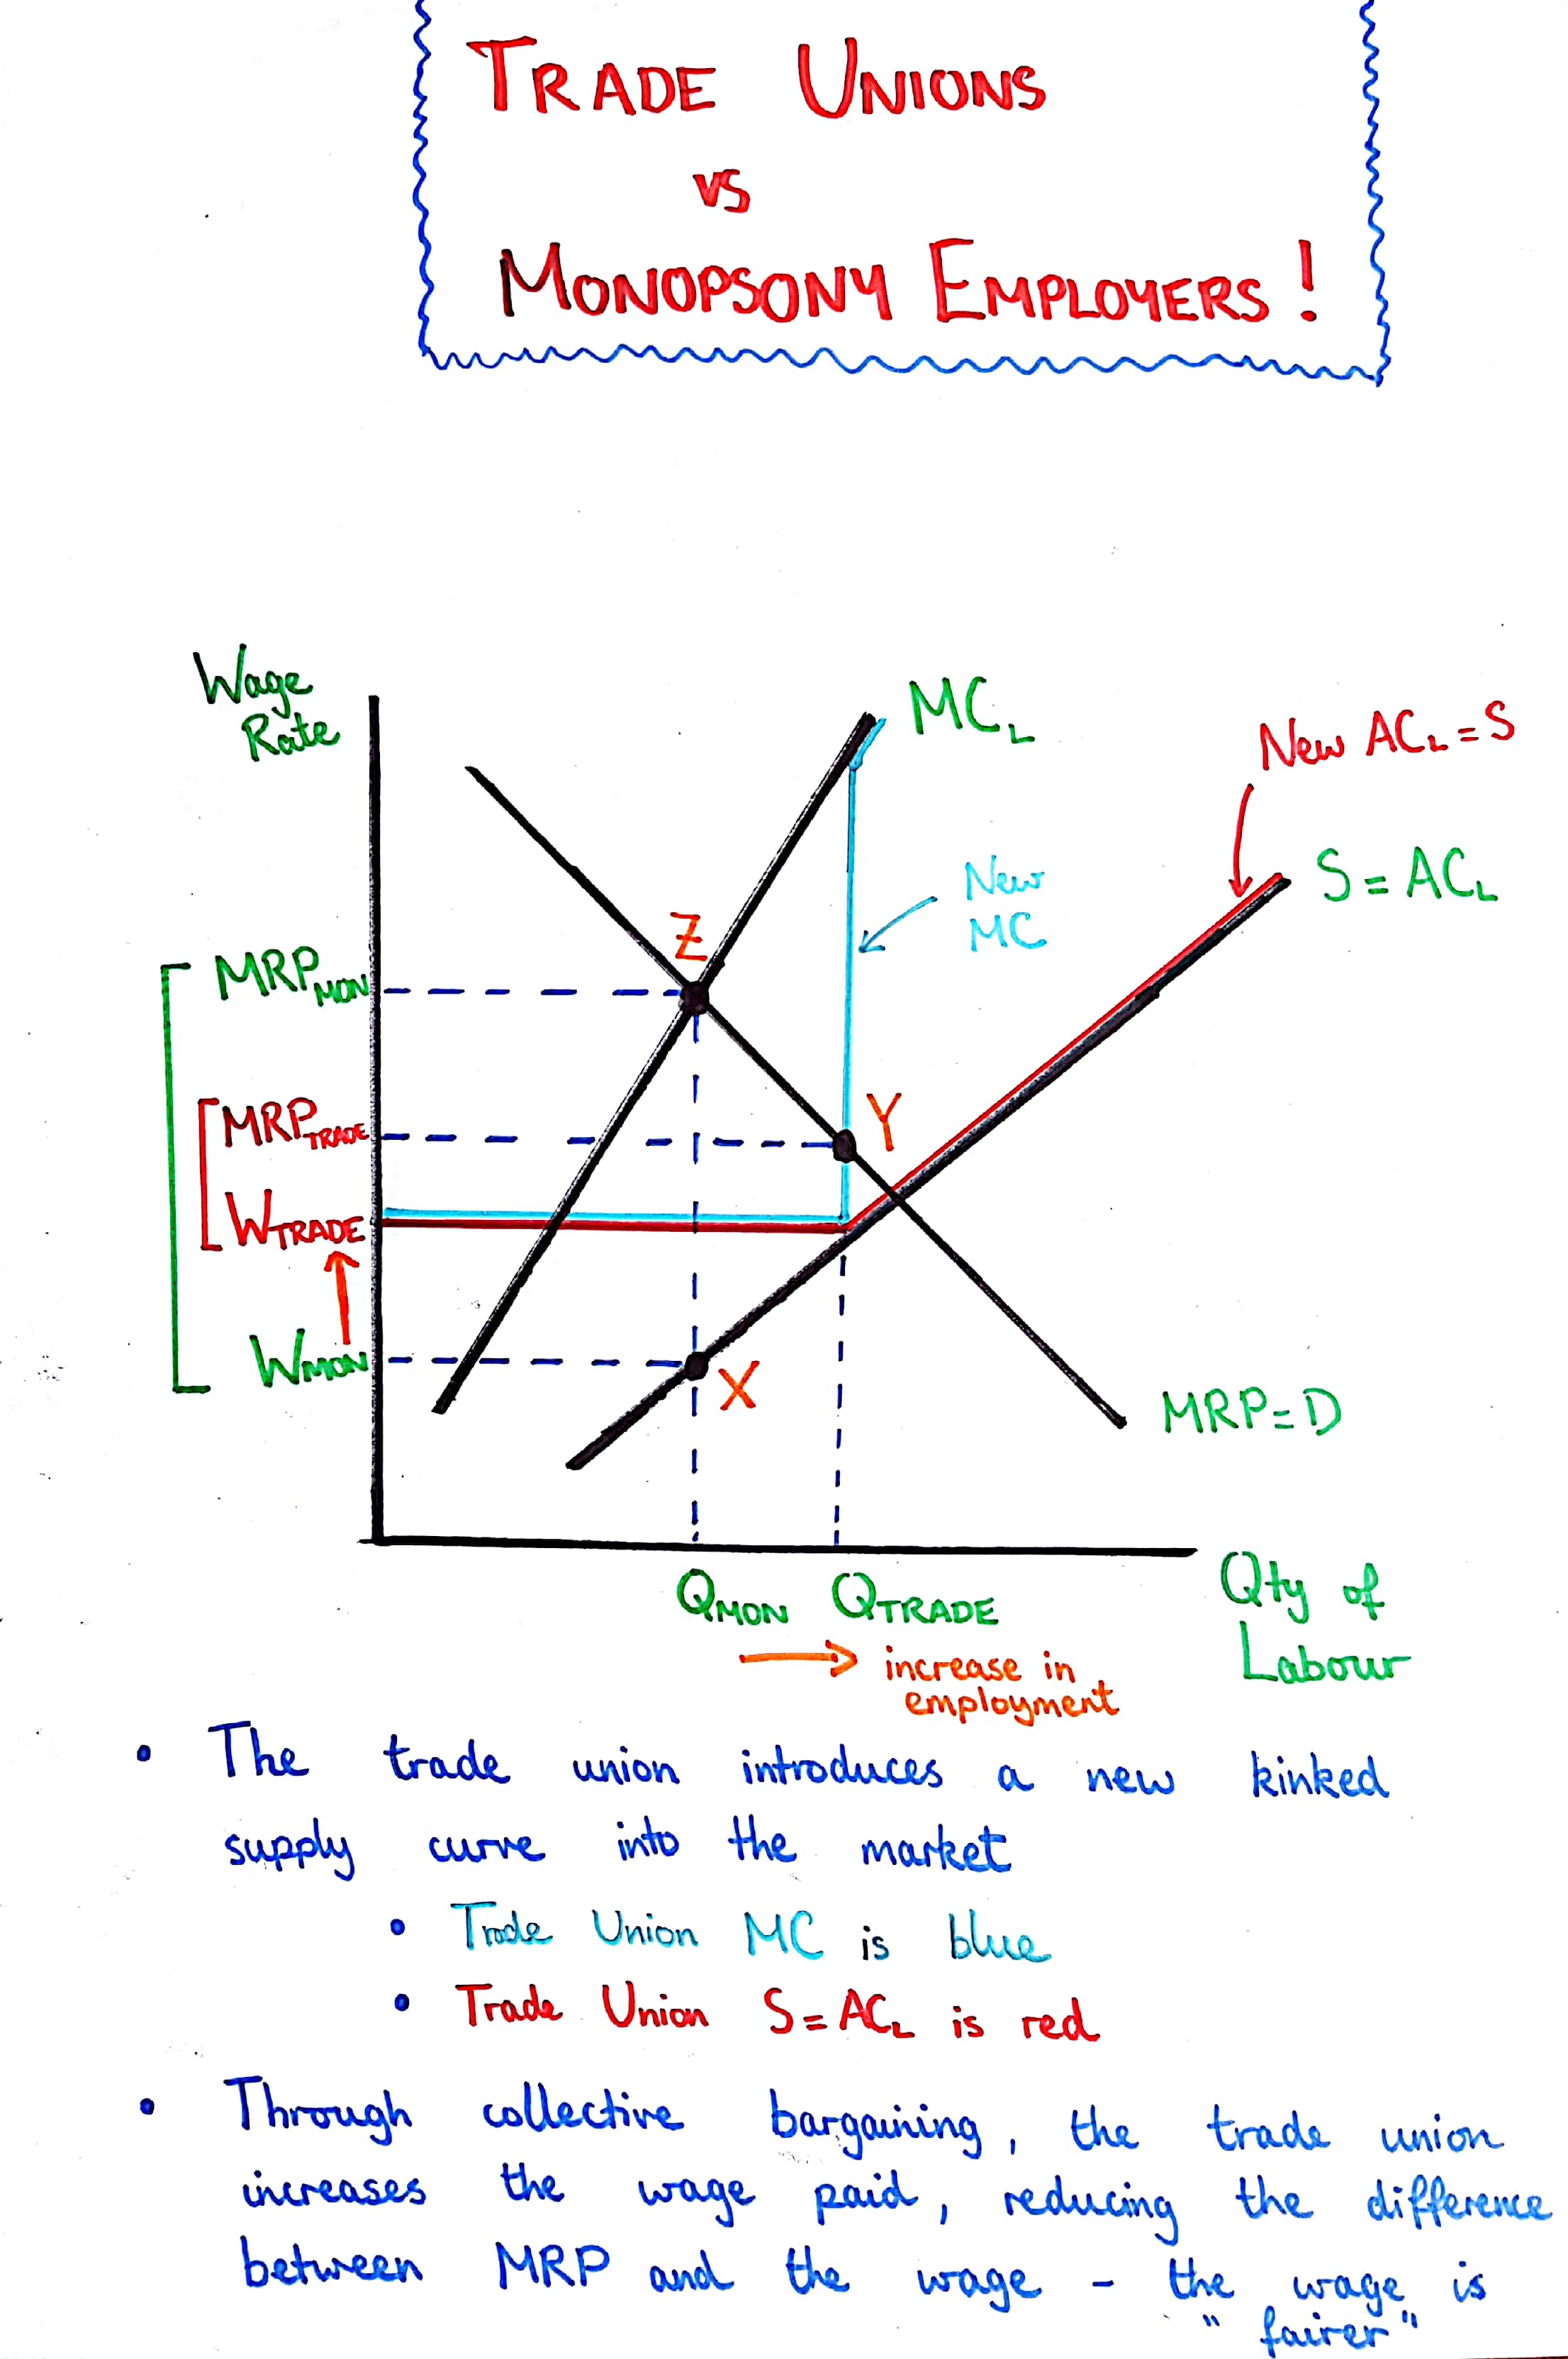 TRADE UNIONS
VS
MONOPSONY EMPLOYERS!
Wage
Rate
MCL
New ACL = S
S = ACL
New
MC
Z
MRPMON
MRPTRADE
Y
WTRADE
WMON
X
MRP=D
QMON QTRADE
Qty of
Labour
increase in
employment
• The trade union introduces a new kinked
supply curve into the market
• Trade Union MC is blue
• Trade Union S=ACL is red
• Through collective bargaining, the trade union
increases the wage paid, reducing the difference
between MRP and the wage - the wage is
"fairer"